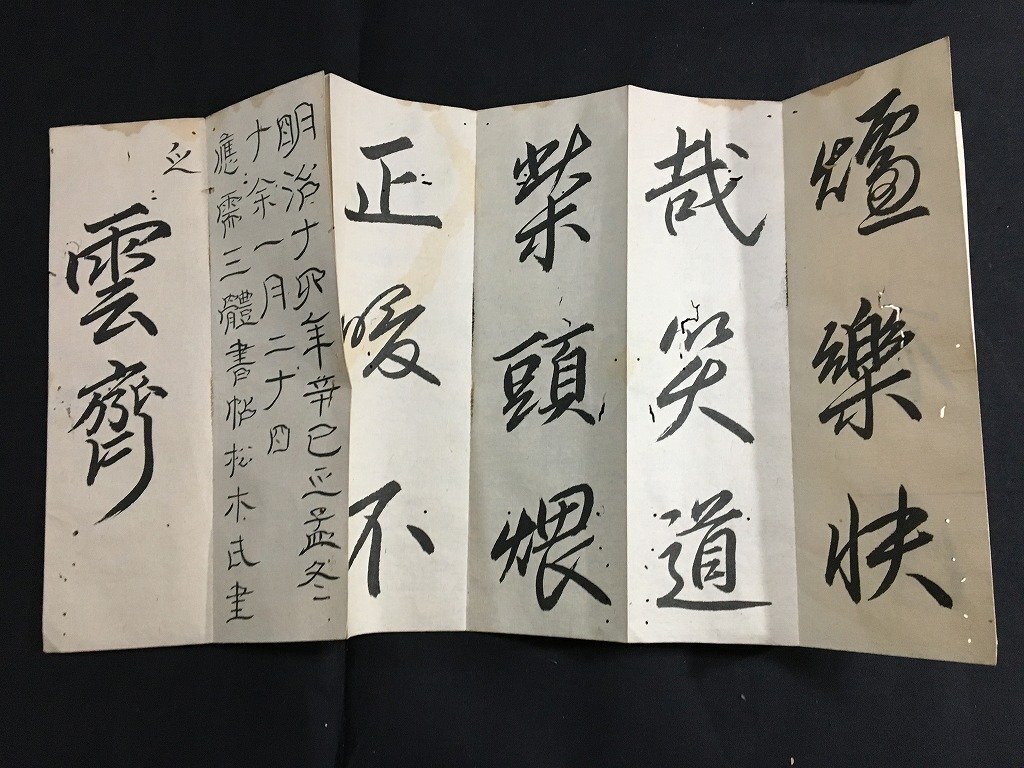 爐樂快
哉笑道
柴頭煨
正暖不
明治十四年辛巳之孟冬
十余一月二十四
應需三體書帖松木氏書
之
雲齋